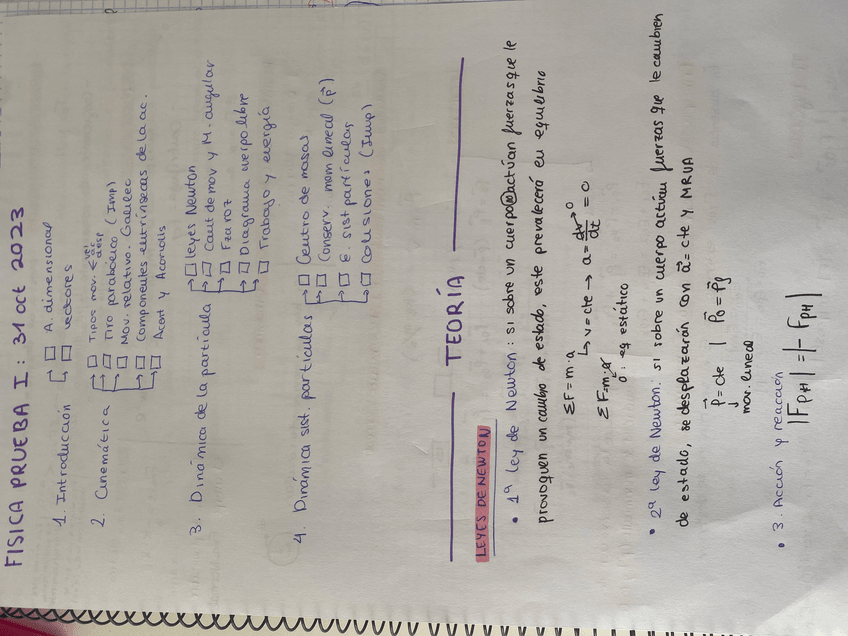 FISICA PRUEBA I : 31 oct 2023
1. Introducción
☐ A. dimensional
☐ vectores
2. Cinemática
☐ Tipos mov. < vel ac desp
☐ Tiro parabólico (Imp)
☐ Mov. relativo. Galileo
☐ Componentes intrínsecas de la ac.
☐ Acent y Acoriolis
3. Dinámica de la partícula
☐ leyes Newton
☐ Cant de mov y M. angular
☐ Fzaroz
☐ Diagrama cuerpo libre
☐ Trabajo y energía
4. Dinámica sist. partículas
☐ Centro de masas
☐ Conserv. mom lineal (p⃗)
☐ E. sist partículas
☐ Colisiones (Imp)
TEORÍA
LEYES DE NEWTON
• 1ª ley de Newton: si sobre un cuerpo no actúan fuerzas que le
provoquen un cambio de estado, este prevalecerá en equilibrio
ΣF = m·a
↳ v = cte → a = dv/dt = 0
ΣF = m·a
0 : eq estático
• 2ª ley de Newton: si sobre un cuerpo actúan fuerzas que le cambien
de estado, se desplazarán con a⃗ = cte y MRUA
p⃗ = cte | p⃗o = p⃗f
mov. lineal
• 3. Acción y reacción
|FPH| = |-FPH|